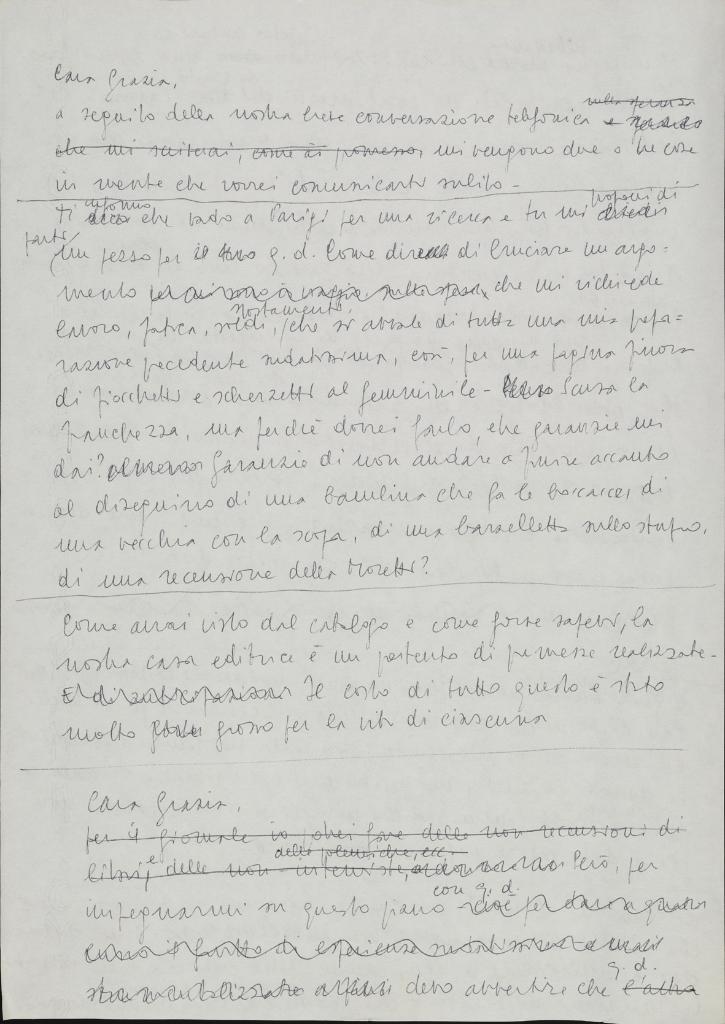 Cara Grazia,
a seguito della nostra breve conversazione telefonica e
che mi suiterai, come di promesso, mi vengono due o tre cose
in mente che vorrei comunicarti subito -
informo proponi di
Ti dico che vado a Parigi per una ricerca e tu mi chiedi
farti
un pezzo per il tuo q. d. Come di bruciare un argo=
mento che mi richiede
nostamenti,
lavoro, fatica, soldi, che si avvale di tutta una mia prepa=
razione precedente sudatissima, così, per una pagina finora
di fiocchetti e scherzetti al femminile - Scusa la
franchezza, ma perché dovrei farlo, che garanzie mi
dai? Garanzie di non andare a finire accanto
al disegnino di una bambina che fa le boccacce, di
una vecchia con la scopa, di una barzelletta sullo stupro,
di una recensione della Moretti?
Come avrai visto dal catalogo e come forse sapevi, la
nostra casa editrice è un portento di premesse realizzate -
Il costo di tutto questo è stato
molto grosso per la vita di ciascuna
Cara Grazia,
per il giornale io potrei fare delle non recensioni di
delle polemiche, ecc.
libri, e delle non-interviste, Però, per
con q. d.
impegnarmi su questo piano
q. d.
devo avvertire che l'altra